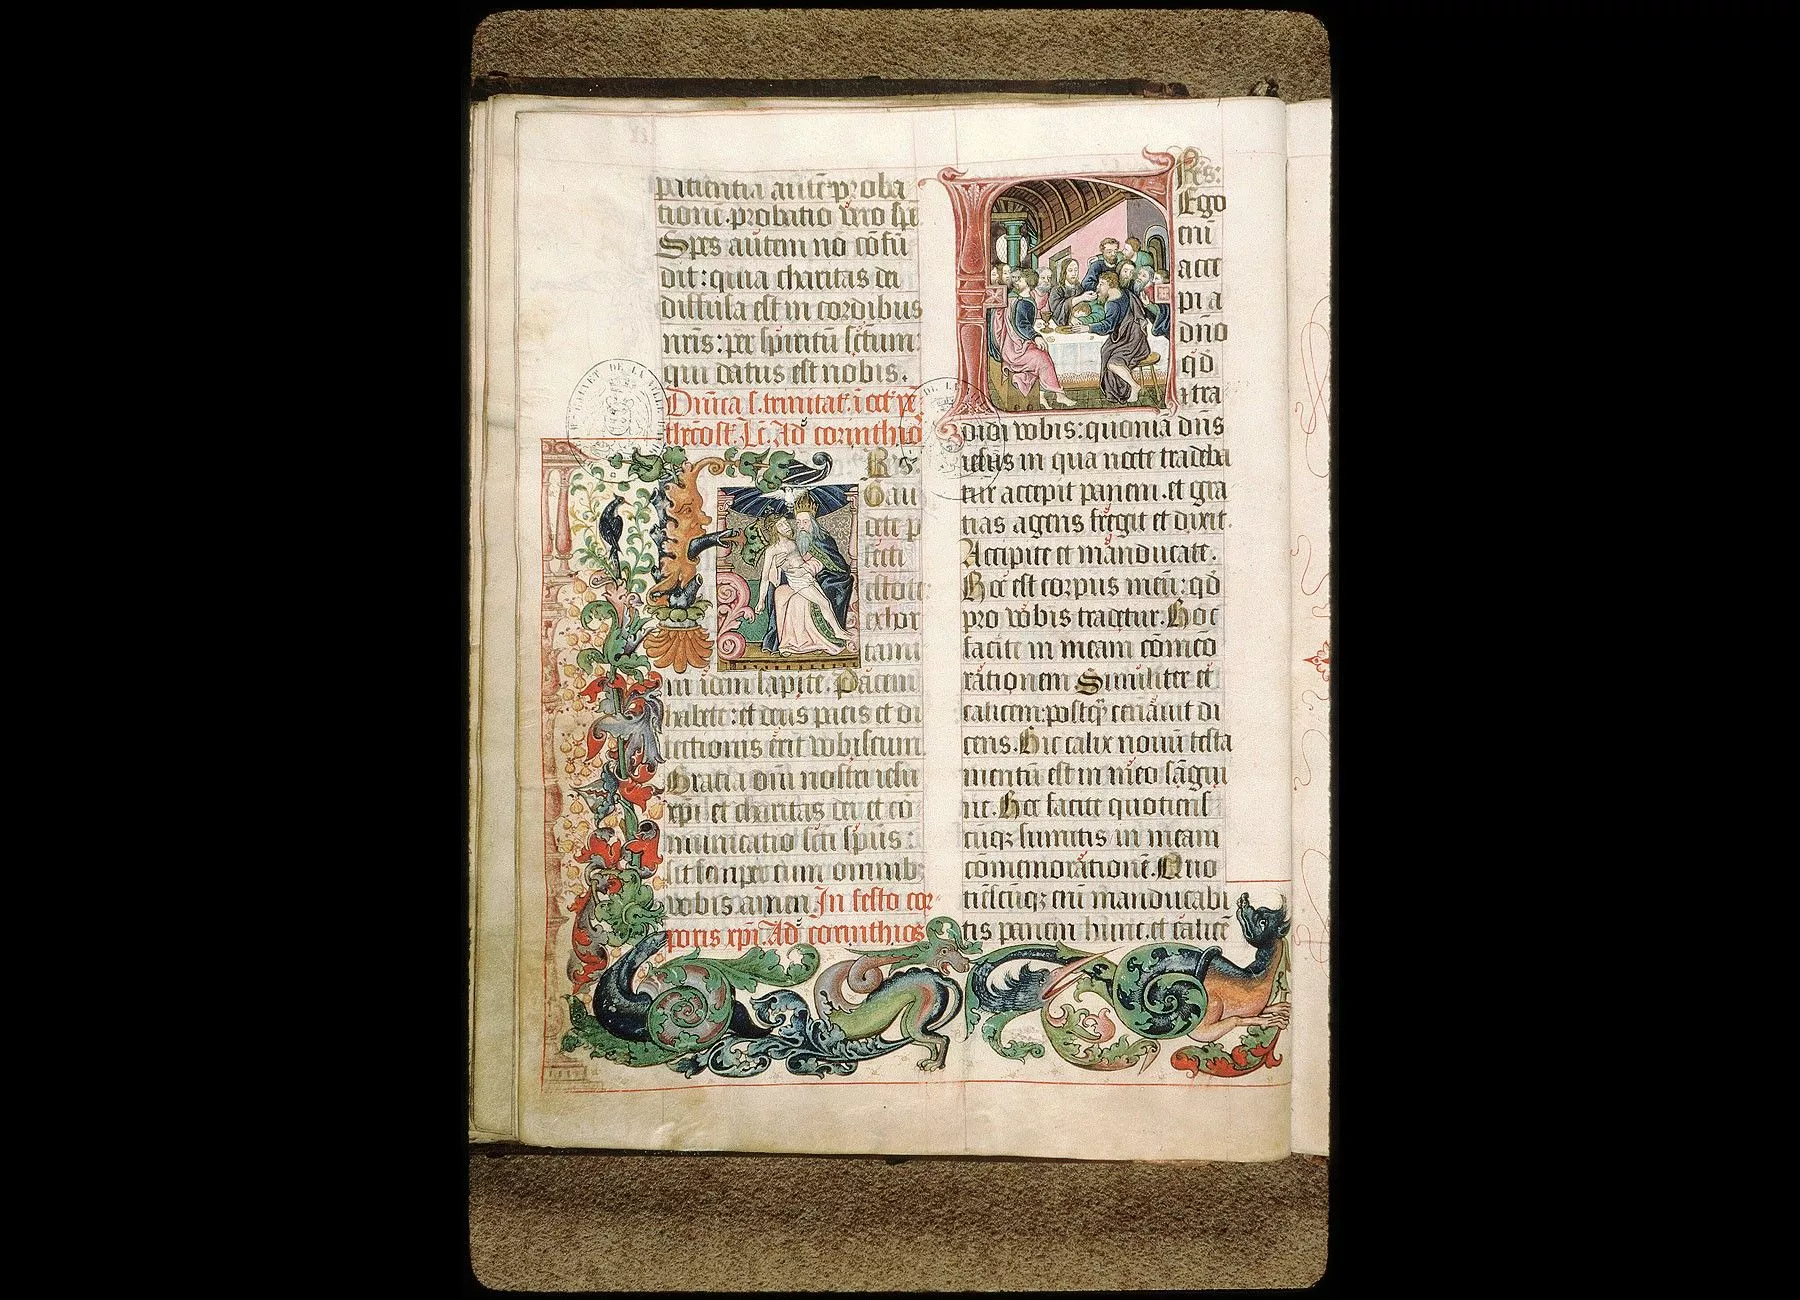 patientia aūtē proba
tionē. probatio vero spē
Spes autem nō cōfū
dit: quia charitas dei
diffusa est in cordibus
nr̄is: per spiritū sc̄tum:
qui datus est nobis.
Dn̄ica s. trinitat̄. i oct̄ pē
thecost. Lc̄. Ad corinthios
Gau
dete p
fecti
estote:
exhor
tami
ni idem sapite. Pacem
habete: et deus pacis et di
lectionis erit vobiscum.
Gratia dn̄i nostri iesu
xp̄i et charitas dei et cō
municatio sc̄ti sp̄us:
sit semper cum omnibꝫ
vobis amen. In festo cor-
poris xp̄i. Ad corinthios
Fr̄es:
Ego
eni
acce
pi a
dn̄o
qd̄
⁊ tra
didi vobis: quoniā dn̄s
iesus in qua nocte tradeba
tur accepit panem. et gra
tias agens fregit et dixit.
Accipite et manducate.
Hoc est corpus meū: qd̄
pro vobis tradetur. Hoc
facite in meam cōmēo
rationem Similiter et
calicem: postq̄ cenauit di
cens. Hic calix nouū testa
mentū est in meo sāgui
ne. Hoc facite quotiens
cūqꝫ sumitis in meam
cōmemorationē. Quo
tiēscūqꝫ eni manducabi
tis panem hunc. et calicē